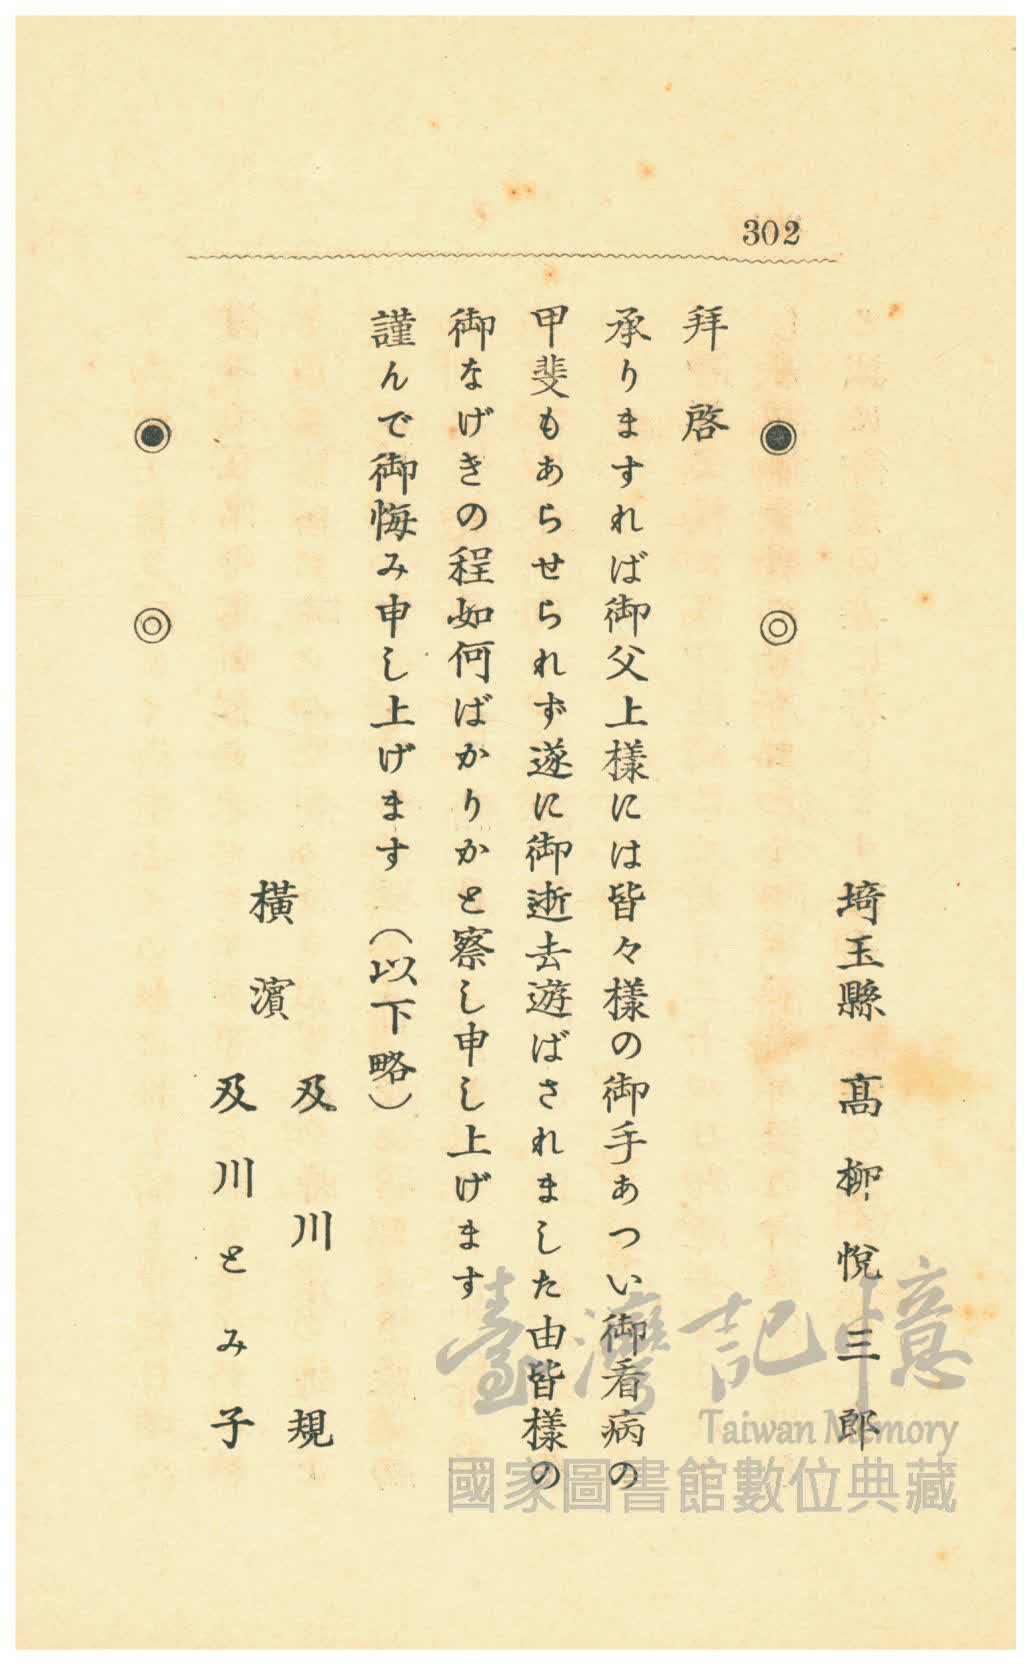 302
埼玉縣 髙柳悅三郎
◉ ◎
拜啓
承りますれば御父上樣には皆々樣の御手あつい御看病の
甲斐もあらせられず遂に御逝去遊ばされました由皆樣の
御なげきの程如何ばかりかと察し申し上げます
謹んで御悔み申し上げます (以下略)
橫濱 及川規
及川とみ子
◉ ◎
臺灣記憶
Taiwan Memory
國家圖書館數位典藏